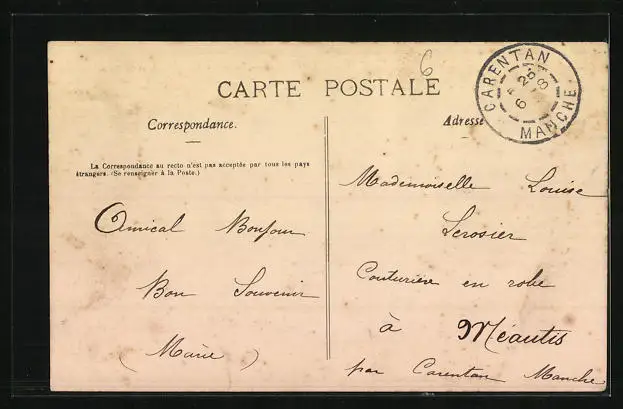 6
CARTE POSTALE
CARENTAN
25
08
MANCHE
Correspondance.
Adresse
La Correspondance au recto n'est pas acceptée par tous les pays
étrangers. (Se renseigner à la Poste.)
Mademoiselle Louise
Lerosier
Couturière en robe
à Méautis
par Carentan Manche
Amical Bonjour
Bon Souvenir
(Marie)